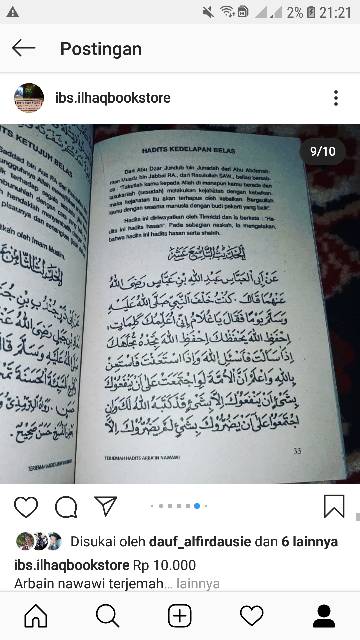 2% 21:21
Postingan
ibs.ilhaqbookstore
9/10
HADITS KETUJUH BELAS
HADITS KEDELAPAN BELAS
Dari Abu Dzar Jundub bin Junadah dan Abu Abdurrah-
man Muadz bin Jabbal RA., dari Rasulullah SAW., beliau bersab-
da : "Takutlah kamu kepada Allah di manapun kamu berada dan
melakukan kejahatan dengan kebaikan.
maka kejahatan itu akan terhapus oleh kebaikan. Bergaullah
kamu dengan sesama manusia dengan budi pekerti yang baik".
Hadits ini diriwayatkan oleh Tirmidzi dan ia berkata : "Ha-
dits ini hadits hasan". Pada sebagian naskah, ia mengatakan,
bahwa hadits ini hadits hasan serta shahih.
الحديث التاسع عشر
عَنْ أَبِي الْعَبَّاسِ عَبْدِ اللهِ بْنِ عَبَّاسٍ رَضِيَ اللهُ
عَنْهُمَا قَالَ: كُنْتُ خَلْفَ النَّبِيِّ صَلَّى اللهُ عَلَيْهِ
وَسَلَّمَ يَوْمًا فَقَالَ يَا غُلَامُ إِنِّي أُعَلِّمُكَ كَلِمَاتٍ:
اِحْفَظِ اللهَ يَحْفَظْكَ اِحْفَظِ اللهَ تَجِدْهُ تُجَاهَكَ
إِذَا سَأَلْتَ فَاسْئَلِ اللهَ وَإِذَا اسْتَعَنْتَ فَاسْتَعِنْ
بِاللهِ وَاعْلَمْ أَنَّ الْأُمَّةَ لَوِ اجْتَمَعَتْ عَلَى أَنْ يَنْفَعُوكَ
بِشَيْءٍ لَمْ يَنْفَعُوكَ إِلَّا بِشَيْءٍ قَدْ كَتَبَهُ اللهُ لَكَ وَإِنِ
اجْتَمَعُوا عَلَى أَنْ يَضُرُّوكَ بِشَيْءٍ لَمْ يَضُرُّوكَ إِلَّا
TERJEMAH HADITS ARBA'IN NAWAWI
33
Disukai oleh dauf_alfirdausie dan 6 lainnya
ibs.ilhaqbookstore Rp 10.000
Arbain nawawi terjemah... lainnya